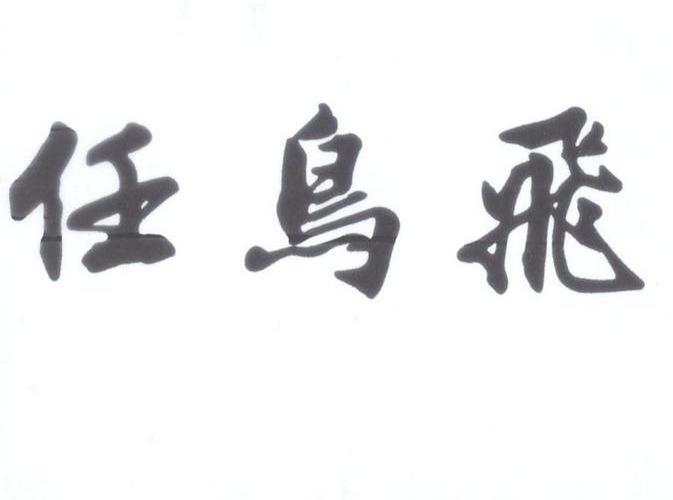 任鳥飛